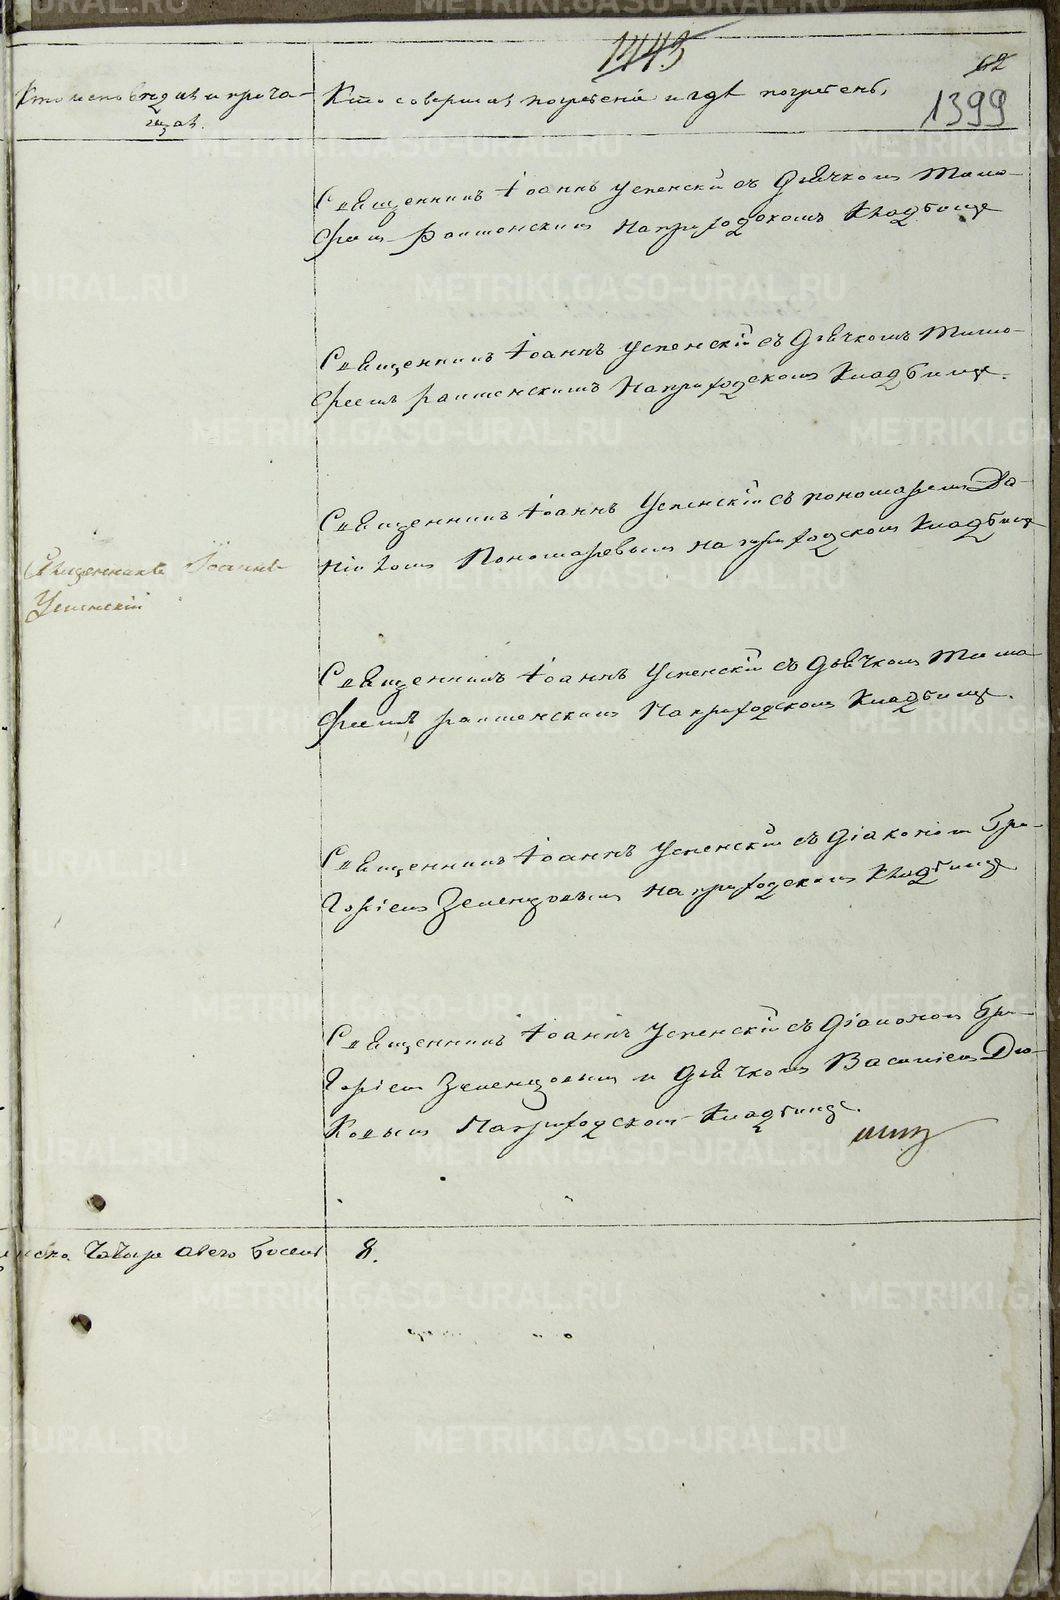 1445
62
1399
Кто исповѣдалъ и прича-
щалъ.
Кто совершалъ погребенiе и гдѣ погребенъ,
Священникъ Iоаннъ Успенскiй съ Дьячкомъ Тимо-
феемъ на приходскомъ Кладбище
Священникъ Iоаннъ Успенскiй съ Дьячкомъ Тимо-
феемъ на приходскомъ Кладбище.
Священникъ Iоаннъ Успенскiй съ пономаремъ Да-
нiиломъ Пономаревымъ на приходскомъ Кладбище
Священникъ Iоаннъ
Успенскiй
Священникъ Iоаннъ Успенскiй съ Дьячкомъ Тимо
феемъ на приходскомъ Кладбище.
Священникъ Iоаннъ Успенскiй съ Дiакономъ Гри-
горiемъ Зеленцовымъ на приходскомъ Кладбище
Священникъ Iоаннъ Успенскiй съ Дiакономъ Гри-
горiемъ Зеленцовымъ и Дьячкомъ Василiемъ Дю-
ковымъ На приходскомъ Кладбище.
а всего восемь 8.
METRIKI.GASO-URAL.RU